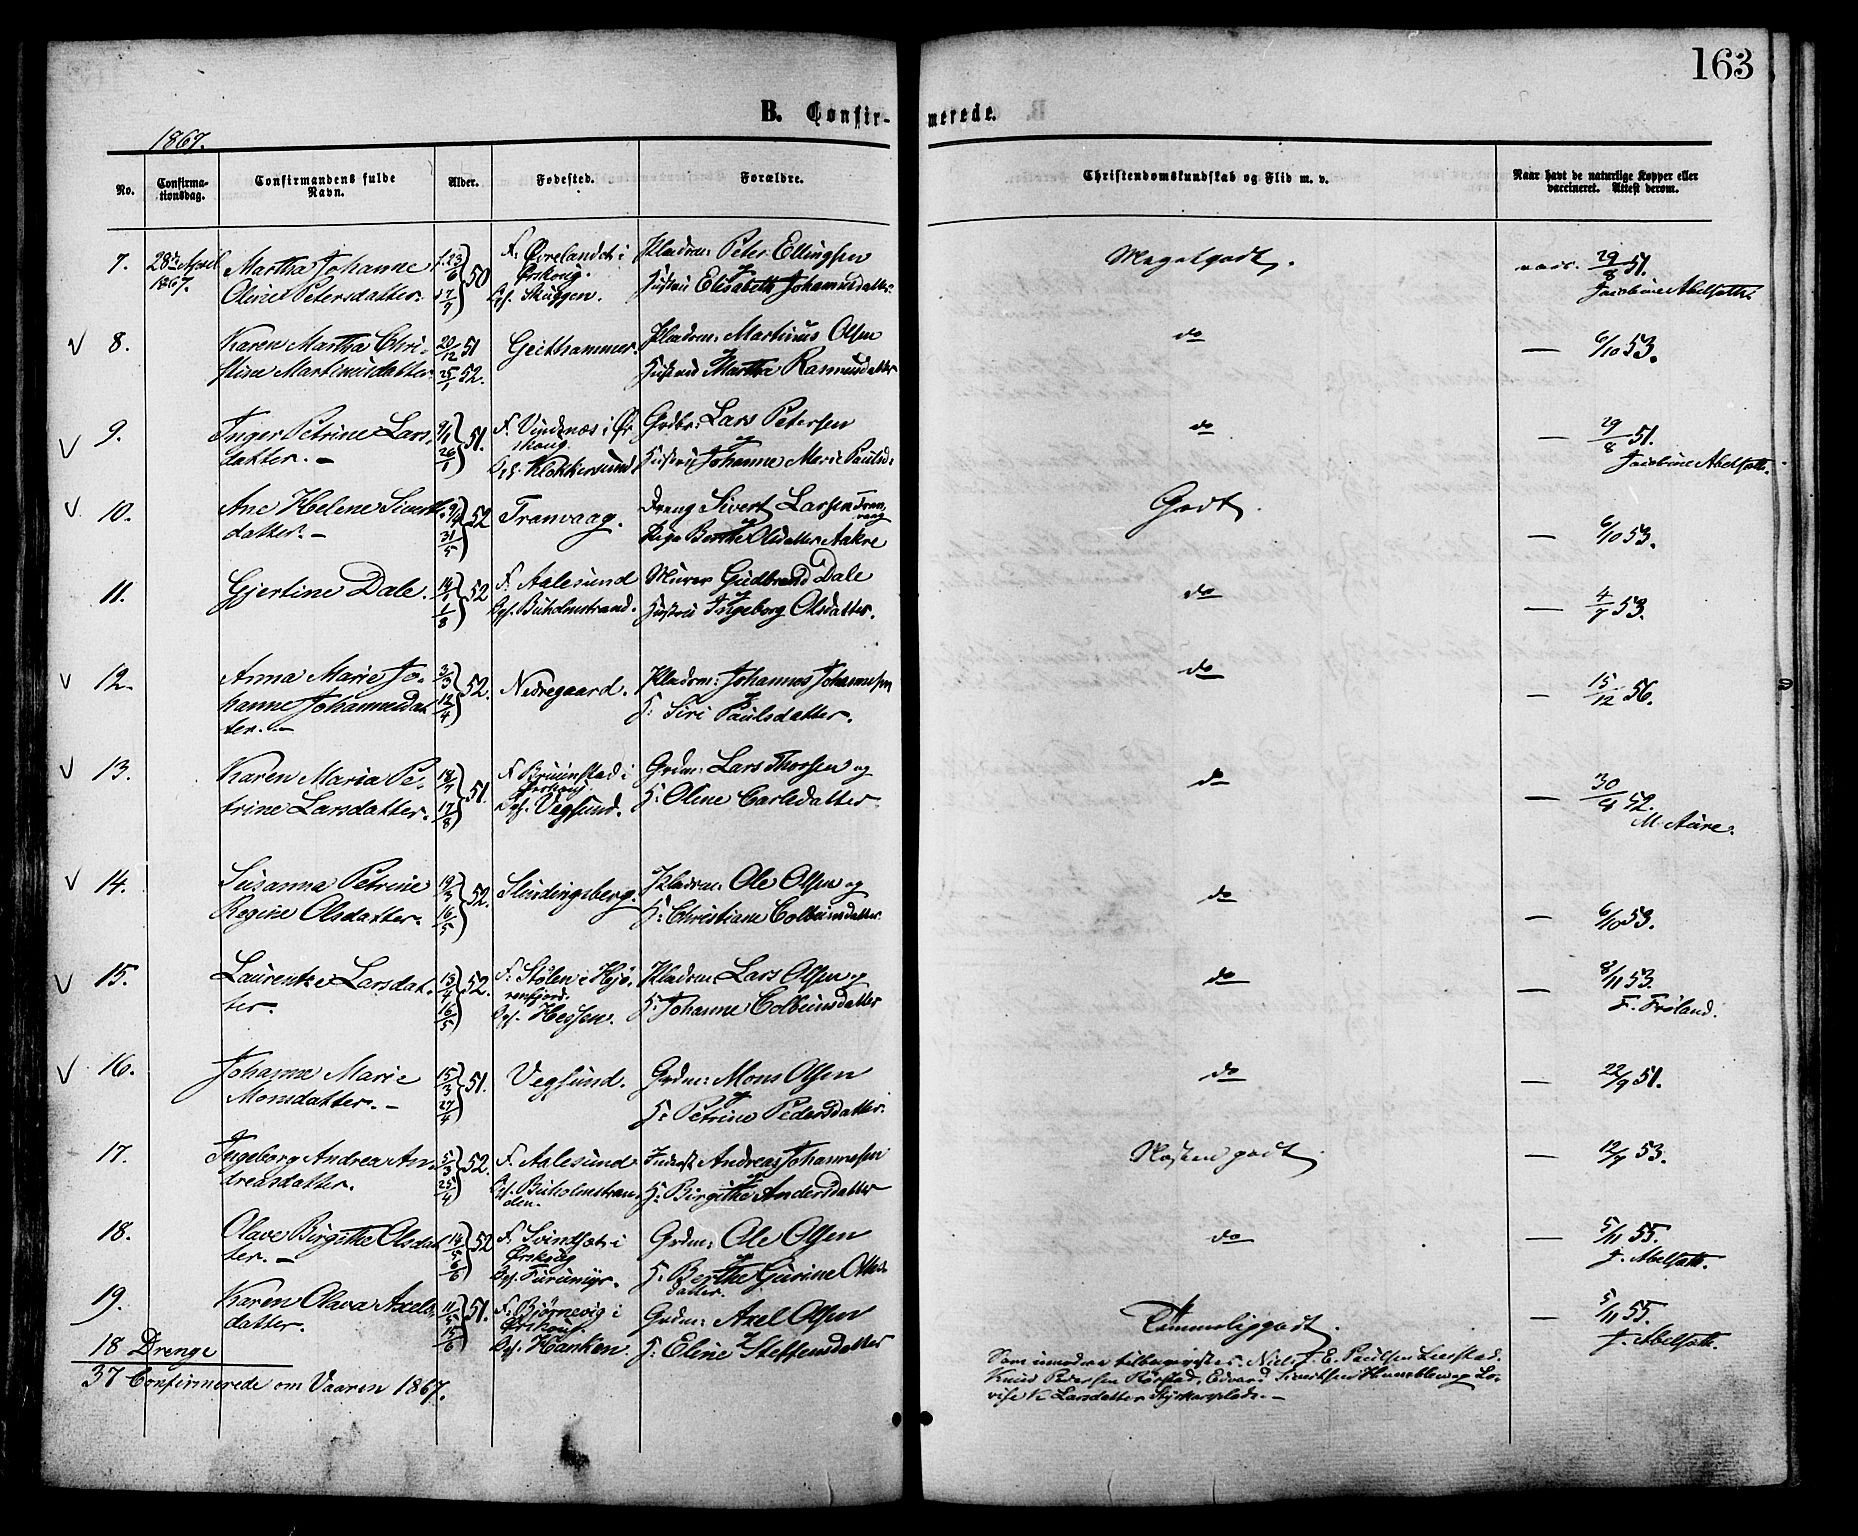 163
B. Confirmerede.
1867.
No.
Confirmationsdag.
Confirmandens fulde Navn.
Alder.
Fødested.
Forældre.
Christendomskundskab og Flid m. v.
Naar havt de naturlige Kopper eller vaccineret. Attest derom.
7. 28de April 1867.
Martha Johanne
Oline Petersdatter.
f. 23/6 50
7/9
F. Øvrelandet i
Ørskoug.
Opf. Skuggen.
Pladsm: Peter Ellingsen
og
Hustru Elisabeth Johannesdatter.
Megetgodt.
vacc. 29/8 51.
Jacobine Abelseth.
V 8.
Karen Martha Chri-
stine Martinusdatter
20/12 51
25/1 52.
Geithammer.
Pladsm: Martinus Olsen
og
Hustru Martha Rasmusdatter
do
— 6/10 53.
V 9.
Inger Petrine Lars-
datter. —
9/1 51.
26/1
F. Vindsnæs i Ør-
skoug.
Opf. Klokkersund
Grdbr: Lars Petersen
og
Hustru Johanne Marie Paulsd:
do
— 29/8 51.
Jacobine Abelseth.
V 10.
Ane Helene Sivert-
datter. —
9/4 52
31/5
Tranvaag.
Dreng Sivert Larsen Tran-
vaag
og
Pige Berthe Olsdatter Aakre
Godt.
— 6/10 53.
11.
Gjertine Dale.
14/1 52
1/8
F. Aalesund
Opf. Buholmstrand.
Murer Gudbrand Dale
og
Hustru Ingeborg Olsdatter.
do
— 4/7 53.
V 12.
Anna Marie Jo-
hanne Johannesdat-
ter. —
3/3 52.
12/4
Nedregaard.
Pladsm: Johannes Johannesen
og
H: Siri Paulsdatter.
do
— 15/12 56.
V 13.
Karen Maria Pe-
trine Larsdatter.
18/7 51.
17/8
F. Bruunstad i
Ørskoug.
Opf. Vegsund.
Grdm: Lars Thorsen og
H: Oline Carlsdatter
do
— 30/4 52.
M. Aure.
V 14.
Susanna Petrine
Regine Olsdatter.
19/3 52.
16/5
Slindingsberg.
Pladsm: Ole Olsen og
H: Christiane Colbeinsdatter.
do
— 6/10 53.
V 15.
Laurentze Larsdat-
ter.
13/4 52.
16/5
F. Stølen i Hjø-
renfjord.
Opf. Hessen.
Pladsm: Lars Olsen og
H: Johanne Colbeinsdatter
do
— 8/11 53.
F. Frøland.
V 16.
Johanna Marie
Monsdatter. —
15/3 51.
27/4
Vegsund.
Grdm: Mons Olsen
og
H: Petrine Pedersdatter.
do
— 22/9 51.
17.
Ingeborg Andrea An-
dreasdatter.
5/3 52.
25/4
F. Aalesund
Opf. Buholmstran-
den.
Inderst Andreas Johannesen
og
H: Birgithe Andersdatter
Næsten godt.
— 12/7 53.
18.
Olave Birgithe Olsdat-
ter. —
14/5 52
6/6
F. Svindset i
Ørskoug
Opf. Furumyr.
Grdm: Ole Olsen
og
H: Berthe Gurine Ols-
datter.
do
— 5/11 55.
J. Abelseth.
19.
Karen Olava Axels-
datter.
11/5 51.
15/6
F. Bjørnevig i
Ørskoug.
Opf. Hanken.
Grdm: Axel Olsen
og
H: Eline Steffensdatter
Temmeliggodt.
— 5/11 55.
J. Abelseth.
18 Drenge
37 Confirmerede om Vaaren 1867.
Som umodne tilbagevistes: Niels E. Paulsen Leerstad.
Knud Pedersen Rørstad, Edvard Sivertsen Humblen og Lo-
vise K. Larsdatter Styrkarsplads. —